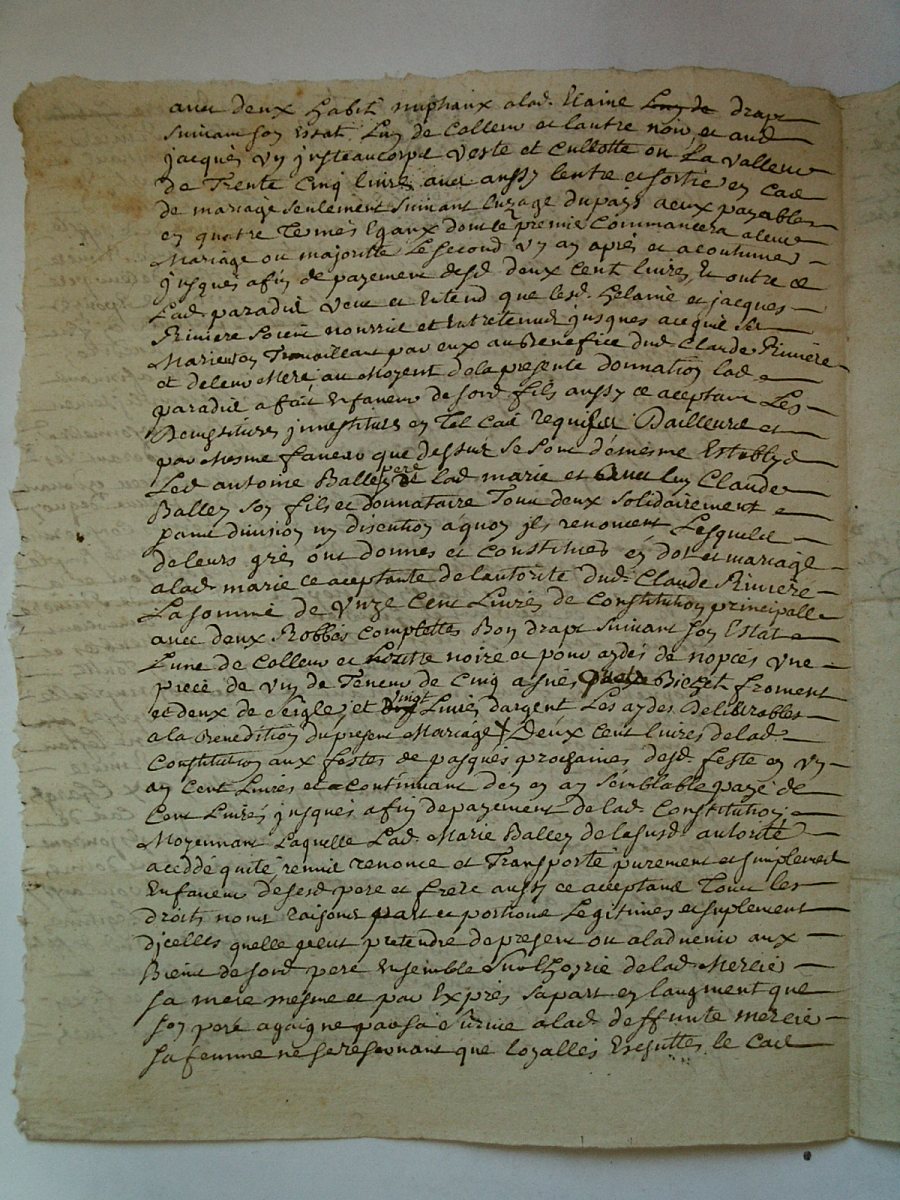 avec deux habit nuptiaux alad. Elaine Luy de drapt
suivant son Estat Luy de Colleur et lautre noir et aud
jacques vn justeaucorpt veste et Cullotte ou La valleur
de Trente Cinq livres avec aussy lentré et sortie en Cas
de mariage seulement suivant Luzage dupays aeux payables
en quatre Termes Egaux dont le premier Commancera aleur
Mariage ou majoritté Le second vn an après et acontinuer
jusques afin de payement desd deux cent livres, Et outre ce
Lad. paradis veut et Entend que lesd. helainie et jacques
Riviere soient nourris et Entretenus jusques acequil se
Marieron Travaillant par eux aubenefice dud. Claude Riviere
et deleur Mere, au Moyent delapresente donnation lad
paradis a fait Enfaveur desond fils aussy ce aceptant Les
Demistitures jnvestiture en Tel Cas requises Dailleurs et
par Mesme faveur que dessus se sont démesme Establys
Led antoine Balley pere de lad marie et avec luy Claude
Balley son fils et donnataire Tous deux solidairement
sans division ny discution aquoy jls renoncent Lesquels
deleurs grès ont donnes et Constitués en dot et mariage
alad. marie ce aceptante de lautorité dud. Claude Riviere
Lasomme de Vnze Cent Livres de Constitution principalle
avec deux Robbes Complettes Bon drapt suivant son Estat
Lune de Colleur et Lautre noire et pour aydes de nopces vne
piece de vin de Teneur de Cinq asnés quatre Bichet froment
et deux de seigle, et vingt Livres dargent Les aydes delibvrables
ala Benedition dupresent Mariage, Deux cent livres delad.
Constitution aux festes de pasques prochaines desd. feste en vn
an Cent Livres et aContinuant den en an semblable paye de
Cent Livres jusques afin depayement delad. Constitution
Moyennant Laquelle Lad. Marie Balley de lasusd. autorité
aceddé quité, remis renonce et Transporté purement et simplement
Enfaveur desesd. pere et frere aussy ce acceptans Tous les
droits noms raisons part et portions Legitimes et suplement
djcelles quelle peut pretendre dapresent ou aladvenir aux
Biens desond. pere Ensemble sur lhoyrie delad. Mercie
sa mere mesme et par Exprès sapart en laugment que
son pere agaigne parsa survie alad. deffunte mercie
safemme nesereservant que loyalles Escuttes le Cas